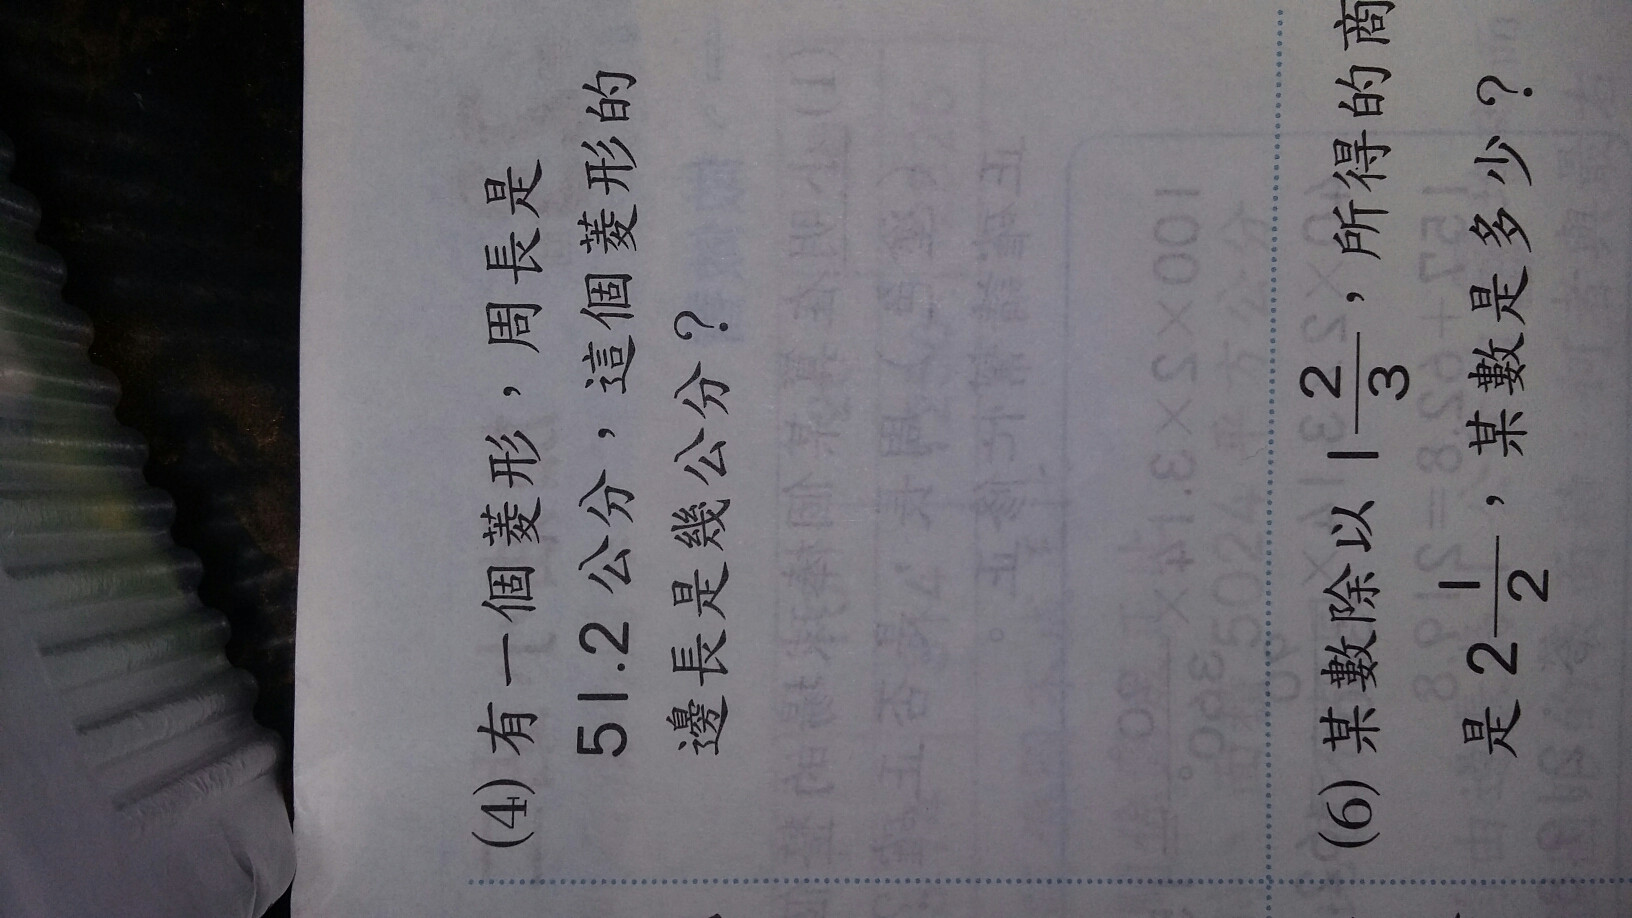 (4)有一個菱形，周長是
51.2公分，這個菱形的
邊長是幾公分？
(6)某數除以1 2/3，所得的商
是2 1/2，某數是多少？